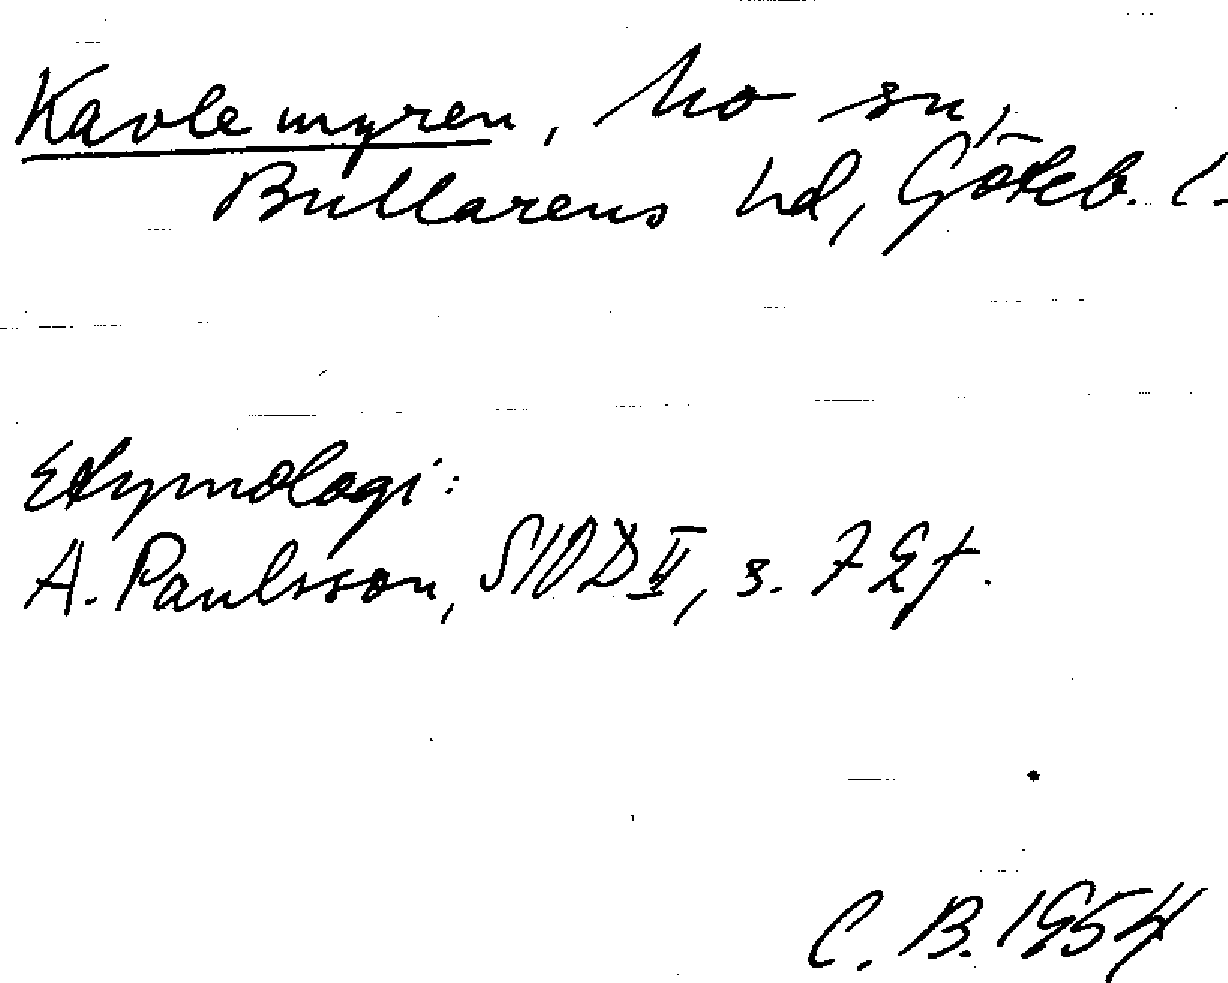 Kavlemyren, Mo sn,
Bullarens hd, Göteb. l.
Etymologi:
A. Paulsson, SIOD II, s. 72f.
C. B. 1954